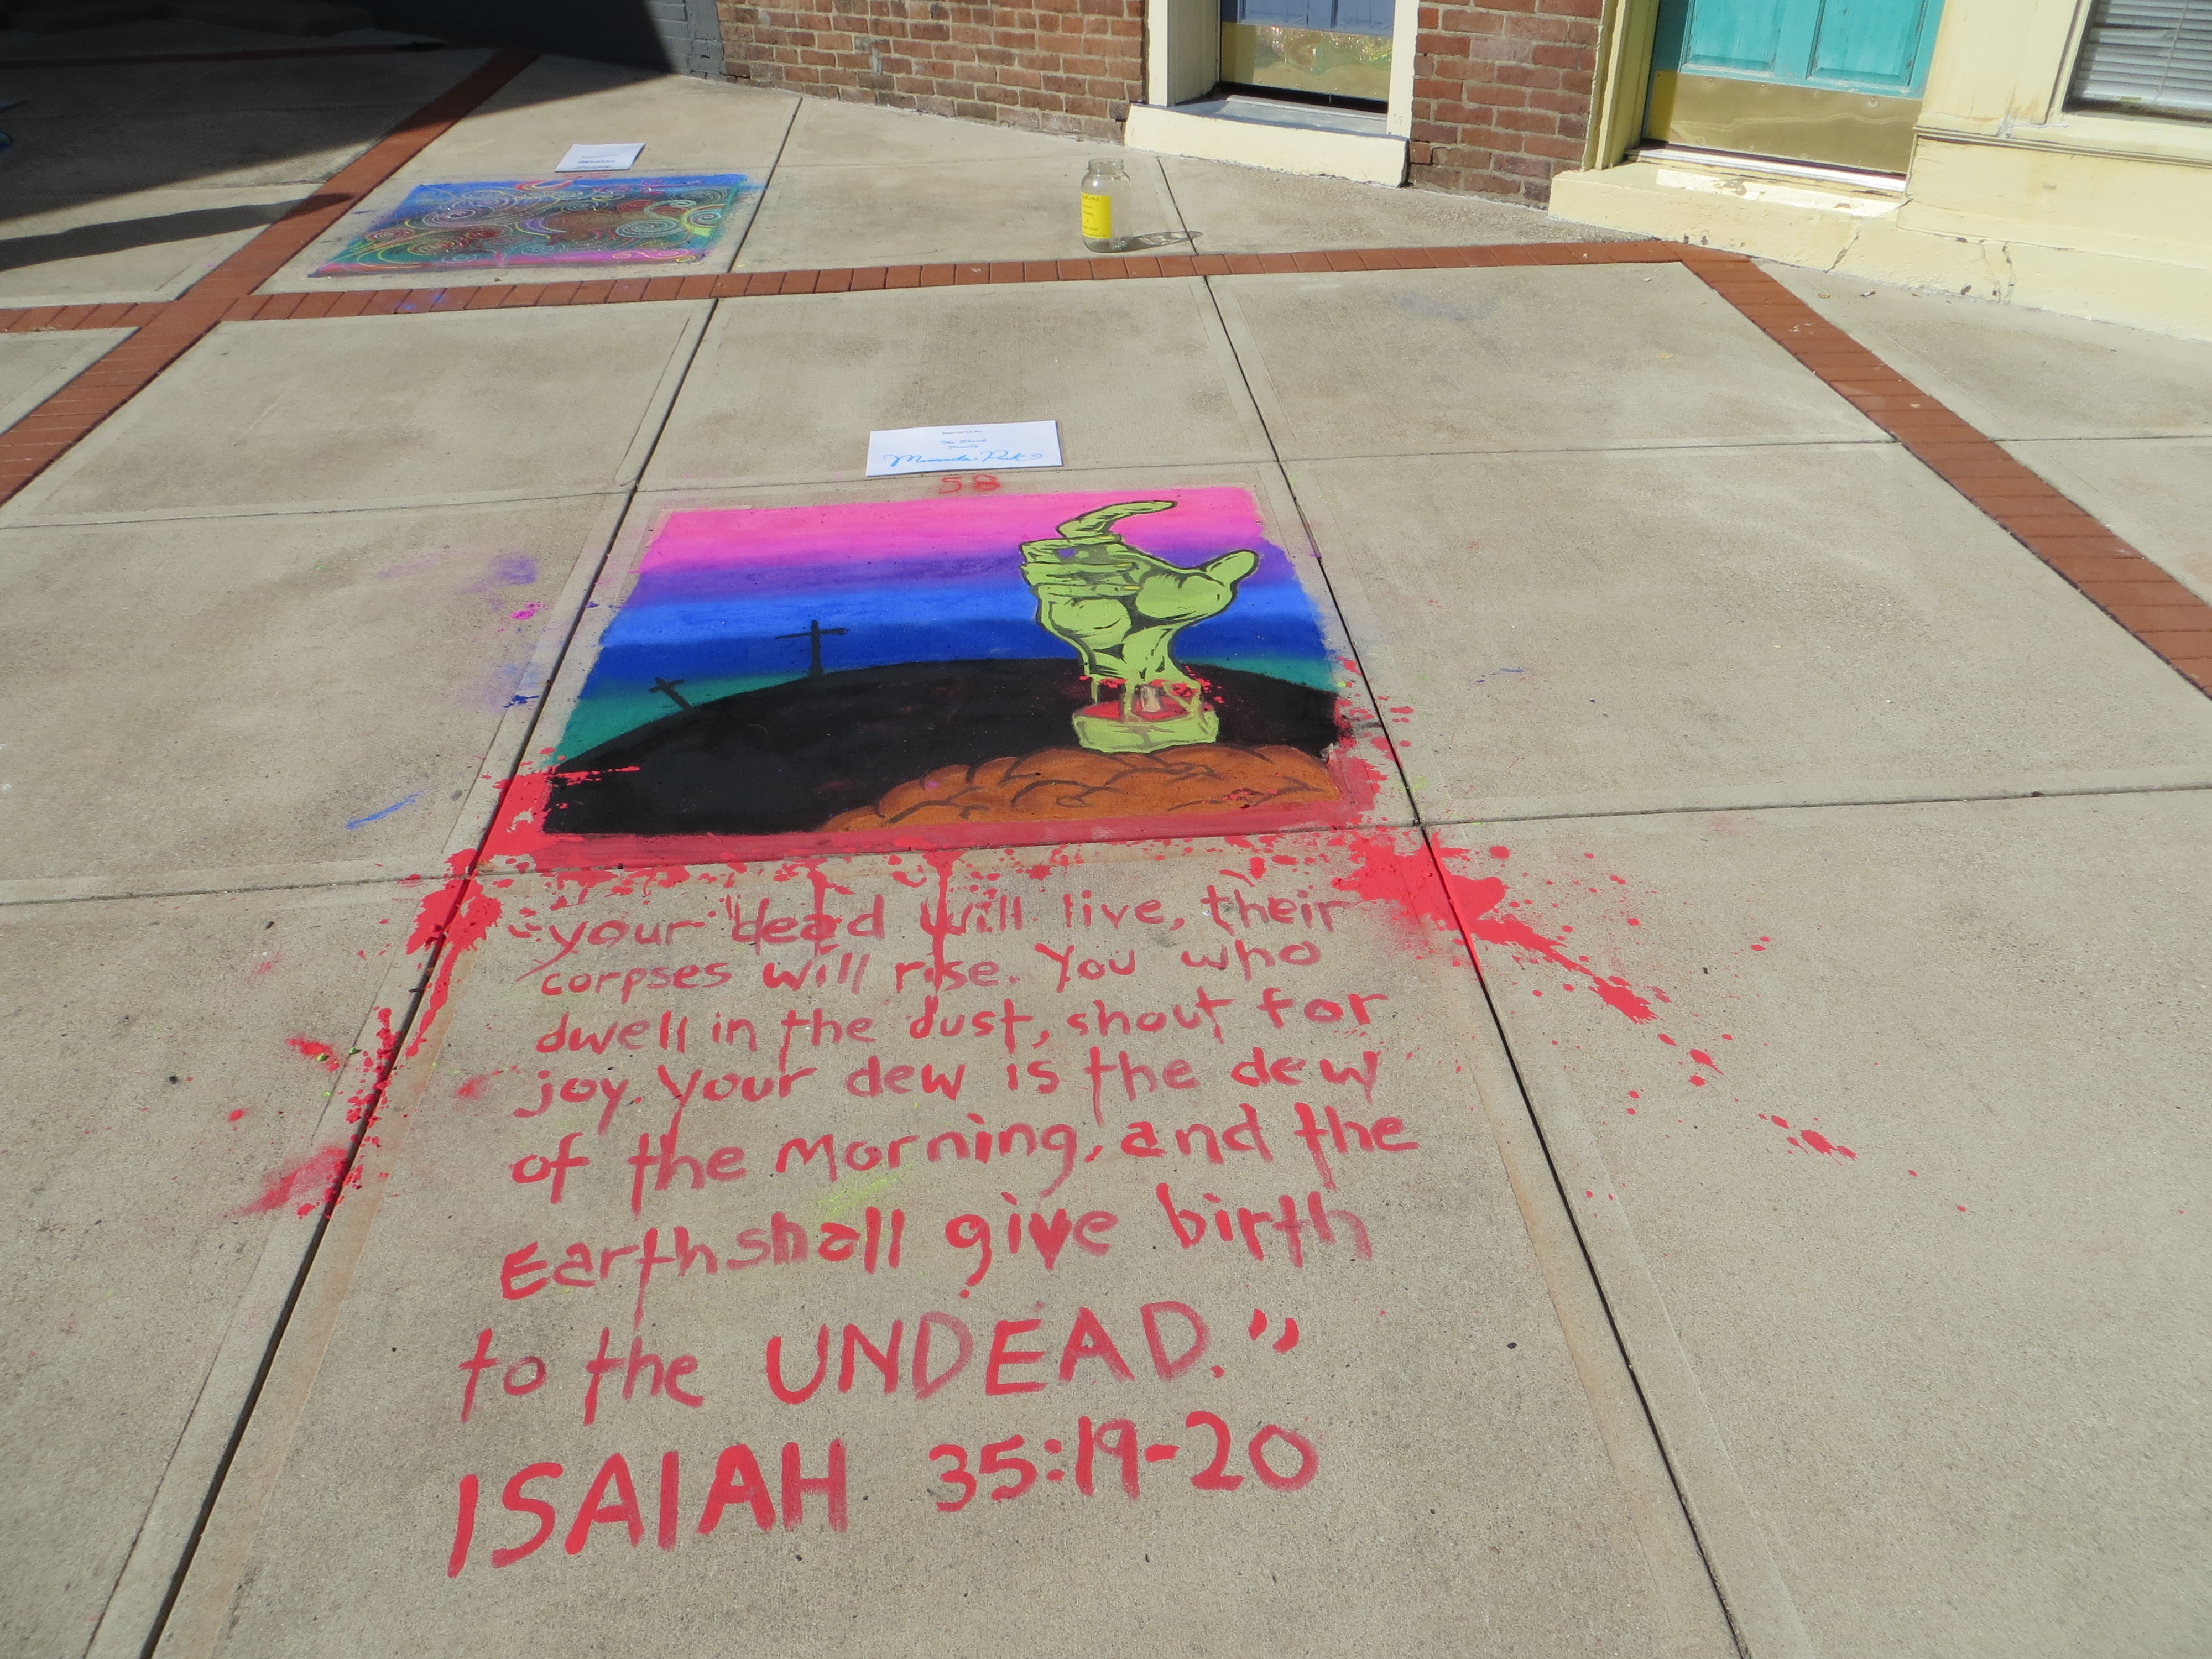 The
Family
58
"your dead will live, their
corpses will rise. You who
dwell in the dust, shout for
joy. Your dew is the dew
of the morning, and the
Earth shall give birth
to the UNDEAD."
ISAIAH 35:19-20